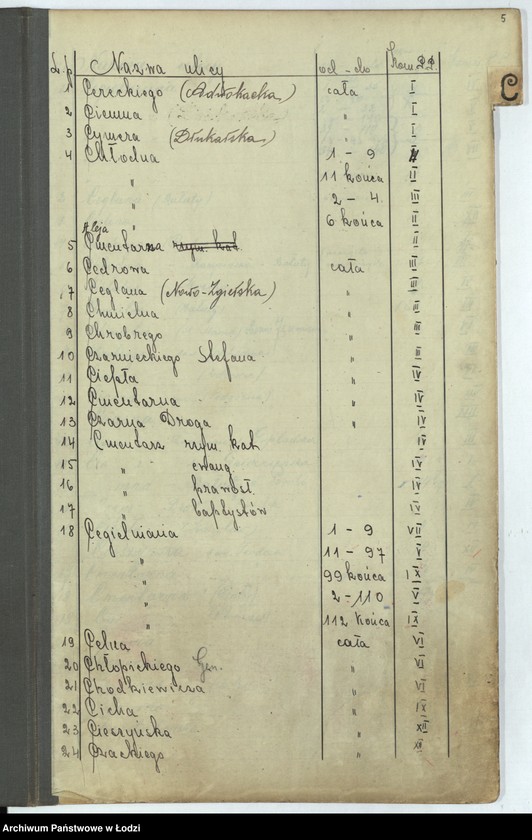 5
C
L.p. Nazwa ulicy od - do Kom. P.P.
1 Cereckiego (Adwokacka) cała I
2 Ciemna " I
3 Cymera (Dłukalska) " I
4 Chłodna 1 - 9 II
" 11 końca II
" 2 - 4. III
" 6 końca II
Aleja
5 Cmentarna rzym. kat. II
6 Cedrowa cała III
7 Ceglana (Nowo-Zgierska) " III
8 Chmielna " III
9 Chrobrego " III
10 Czarnieckiego Stefana " III
11 Ciepła " IV
12 Cmentarna " IV
13 Czarna Droga " IV
14 Cmentarz rzym. kat. IV
15 " ewang. IV
16 " prawosł. IV
17 " baptystów IV
18 Cegielniana 1 - 9 VII
" 11 - 97 V
" 99 końca IX
" 2 - 110 V
" 112 końca IX
19 Celna cała VI
20 Chłopickiego Gen. " VI
21 Chodkiewicza " VI
22 Cicha " IX
23 Cieszyńska " XII
24 Czackiego " XII
Archiwum Państwowe w Łodzi